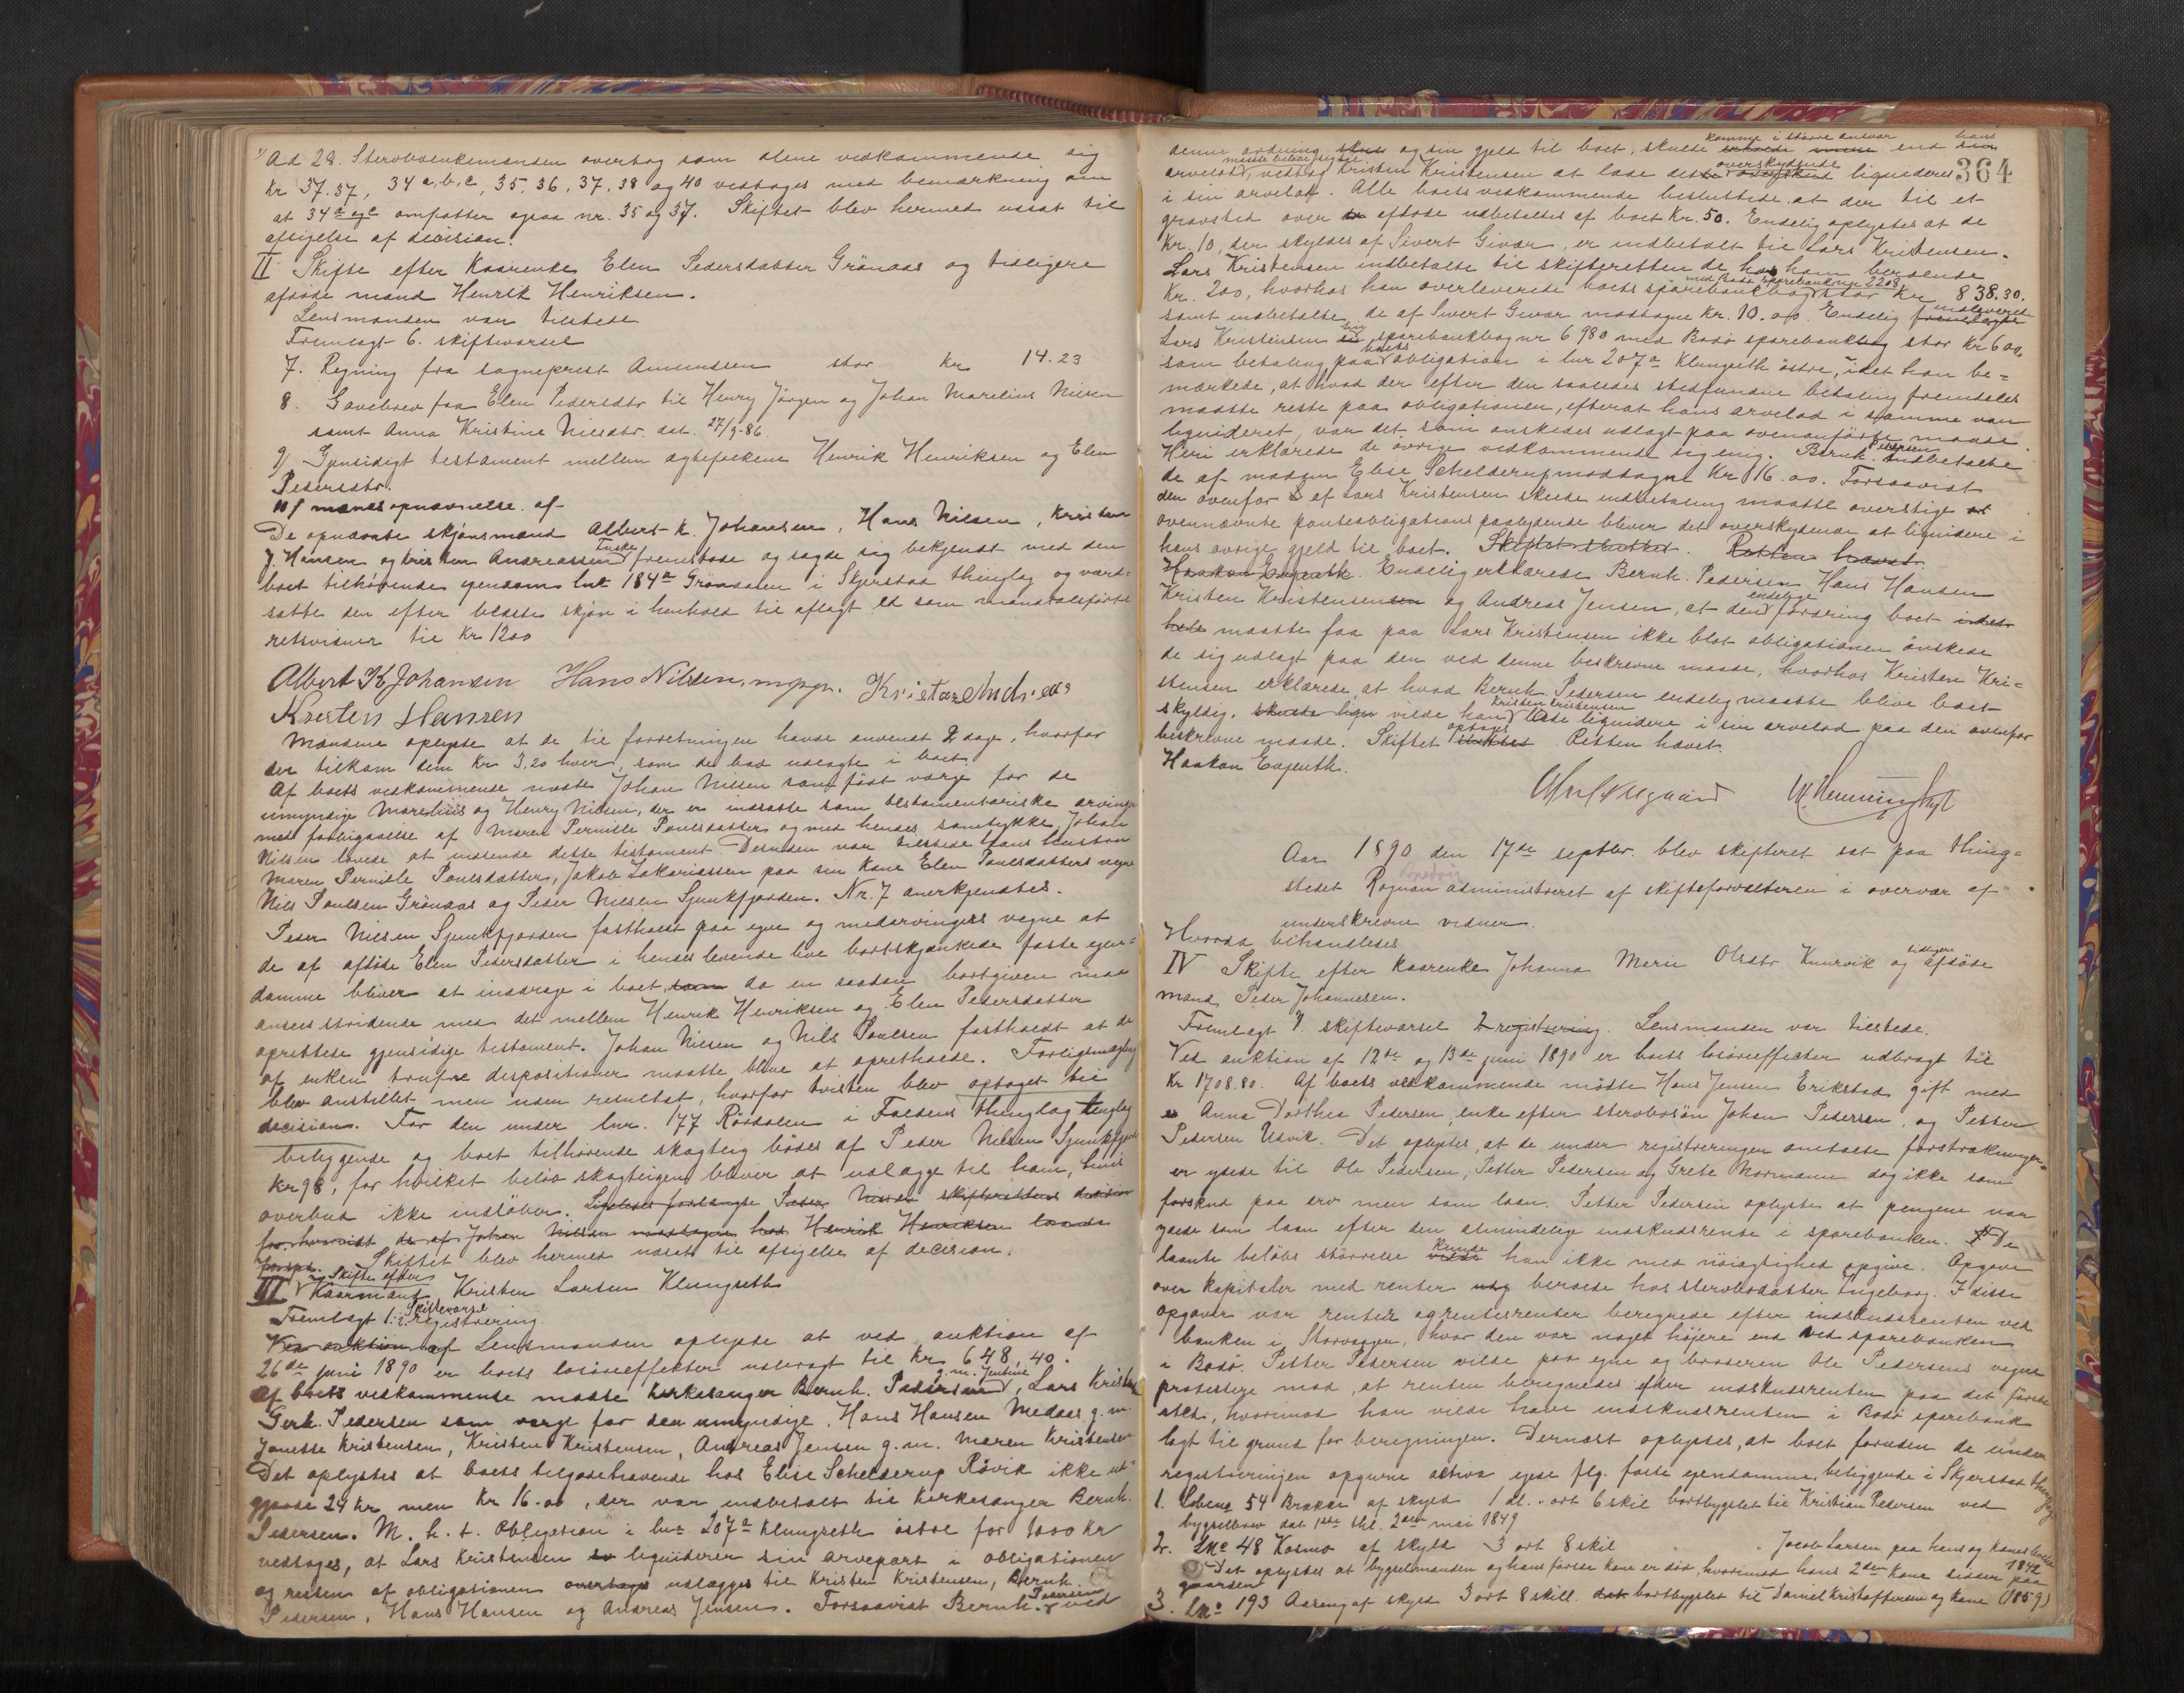 Ad 28. Stervboenkemanden overtog som alene vedkommende sig
Kr 37.37, 34 a, b, c, 35. 36, 37, 38 og 40 vedtoges med bemærkning om
at 34 a og c omfatter ogsaa nr. 35 og 37. Skiftet blev hermed udsat til
afsigelse af decision.
II Skifte efter Kaarenke Elen Pedersdatter Grönaas og tidligere
afdöde mand Henrik Henriksen.
Lensmanden var tilstede
Fremlagt 6. skiftevarsel
7. Regning fra sogneprest Amundsen stor kr 14.23
8. Gavebrev fra Elen Pedersdtr til Henry Jörgen og Johan Marelius Nilsen
samt Anna Kristine Nilsdtr. dat. 27/9-86.
9) Gjensidigt testament mellem ægtefolkene Henrik Henriksen og Elen
Pedersdtr.
10) mandsopnævnelse af
De opnævnte skjönsmænd Albert K. Johansen, Hans Nilsen, Kristen
J. Hansen og Kristen Andreassen Fuske fremstode og sagde sig bekjendt med den
boet tilhörende eiendom lnr 184a Grönaasen i Skjerstad thinglag og værd-
satte den efter bedste skjön i henhold til aflagt ed som mandtalsförte
retsvidner til Kr 1200
Albert K Johansen Hans Nilsen, m.p.p. Kristen Andreas
Kresten Hansen
Mændene oplyste at de til forretningen havde anvendt 2 dage, hvorfor
der tilkom dem Kr 3.20 hver, som de bad udlagte i boet.
Af boets vedkommende mödte Johan Nilsen som födt værge for de
umyndige Marelius og Henry Nilsen, der er indsatte som testamentariske arvinger
med forbigaaelse af Maren Pernille Poulsdatter og med hendes samtykke. Johan
Nilsen lovede at indsende dette testament. Desuden var tilstede hans hustru
Maren Pernille Poulsdatter, Jakob Zakariassen paa sin kone Elen Poulsdatters vegne
Nils Poulsen Grönaas og Peder Nilsen Sjunkfjorden. Nr. 7 anerkjendtes.
Peder Nilsen Sjunkfjorden fastholdt paa egne og medarvingers vegne at
de af afdöde Elen Pedersdatter i hendes levende live bortskjænkede faste eien-
domme bliver at inddrage i boet, som da en saadan bortgiven maa
ansees stridende med det mellem Henrik Henriksen og Elen Pedersdatter
oprettede gjensidige testament. Johan Nilsen og Nils Poulsen fastholdt at de
af enken trufne dispositioner maatte blive at opretholde. Forligsmægling
blev anstillet men uden resultat, hvorfor tvisten blev optaget til
decision. For den under lnr. 177 Rösdalen i Foldens thinglag
beliggende og boet tilhörende skogteig bödes af Peder Nilsen Sjunkfjord
Kr 98, for hvilket belöb skogteigen bliver at udlægge til ham, hvis
overbud ikke indlöber. Ligeledes forlangte Peder Nilsen skifterettens decision
for hvorvidt de af Johan Nilsen modtagne hos Henrik Henriksen laante
Skiftet blev hermed udsat til afsigelse af decision.
III Skifte efter Kaarmand Kristen Larsen Klungseth
Fremlagt 1. Skiftevarsel 2. registrering.
Ved auktion af Lensmanden oplyste at ved auktion af
26de juni 1890 er boets lösöreeffekter udbragt til Kr 648,40.
Af boets vedkommende mödte kirkesanger Bernh. Pedersen g. m. Jentine, Lars Kristensen
Gerh. Pedersen som værge for den umyndige, Hans Hansen Medaas g. m.
Janette Kristensen, Kristen Kristensen, Andreas Jensen g. m. Maren Kristensen
Det oplystes at boets tilgodehavende hos Elise Schelderup Rövik ikke ud-
gjorde 24 kr, men Kr 16.00, der var indbetalt til kirkesanger Bernh.
Pedersen. M. h. t. Obligation i lnr 207a Klungseth östre for 1000 Kr
vedtoges, at Lars Kristensen liquiderer sin arvepart i obligationen
og resten af obligationen overtages udlægges til Kristen Kristensen, Bernh.
Pedersen, Hans Hansen og Andreas Jensen. Forsaavidt Bernh. Pedersen ved
364
denne ordning skene og sin gjeld til boet, skulde komme i större ansvar end hans
arvelod, vedtog Kristen Kristensen at lade dette overskydende liquideres
i sin arvelod. Alle boets vedkommende besluttede at der til et
gravsted over afdöde udbetales af boet kr. 50. Endelig oplystes at de
Kr. 10, der skyldes af Sivert Givær, er indbetalt til Lars Kristensen.
Lars Kristensen indbetalte til skifteretten de hos ham beroende
Kr. 200, hvorhos han overleverede boets sparebankbog med Bodö Sparebank nr 2208 stor Kr 838.30.
samt indbetalte de af Sivert Givær modtagne Kr. 10.00. Endelig fremlagte indleverede
Lars Kristensen sin sparebankbog nr 6980 med Bodö sparebank stor Kr 600,
som betaling paa boets obligation i lnr 207a Klungseth östre, idet han be-
mærkede, at hvad der efter den saaledes stedfundne betaling fremdeles
maatte reste paa obligationen, efterat hans arvelod i samme var
liquideret, var det som önskedes udlagt paa ovenanförte maade
Heri erklærede de övrige vedkommende sig enig. Bernh. Pedersen indbetalte
de af madam Elise Schelderup modtagne Kr 16.00. Forsaavidt
den ovenfor af Lars Kristensen skeede indbetaling maatte overstige
ovennævnte panteobligations paalydende bliver det overskydende at liquidere i
hans övrige gjeld til boet. Skiftet sluttet. Retten hævet.
Haakon Engenth. Endelig erklærede Bernh. Pedersen Hans Hansen
Kristen Kristensen og Andreas Jensen, at den endelige fordring boet
maatte faa paa Lars Kristensen ikke blot obligationen önskede
de sig udlagt paa den ved denne beskrevne maade, hvorhos Kristen Kri-
stensen erklærede, at hvad Bernh. Pedersen endelig maatte blive boet
skyldig, skulde lign vilde han Kristen Kristensen lade liquidere i sin arvelod paa den ovenfor
beskrevne maade. Skiftet optages sluttet Retten hævet.
Haakon Engenth.
Aar 1890 den 17de septbr. blev skifteret sat paa thing-
stedet Rognan administreret af skifteforvalteren i overvær af
underskrevne vidner.
Hvorda behandledes
IV Skifte efter kaarenke Johanna Marie Olsdtr Kvarvik og tidligere afdöde
mand Peder Johannesen.
Fremlagt 1. skiftevarsel 2 registrering. Lensmanden var tilstede.
Ved auktion af 12te og 13de juni 1890 er boets lösöreeffecter udbragt til
Kr 1708.80. Af boets vedkommende mödte Hans Jensen Erikstad gift med
Anna Dorthea Pedersen, enke efter stervbosön Johan Pedersen, og Petter
Pedersen Usvik. Det oplystes, at de under registreringen anstalte forstrækninger
er ydede til Ole Pedersen, Petter Pedersen og Grete Normann dog ikke som
forskud paa arv men som laan. Petter Pedersen oplyste at pengene var
ydede som laan efter den almindelige indskudsrente i sparebanken. De
laante belöbs störrelse kunde han ikke med nöiagtighed opgive. Opgave
over kapitaler med renter beroede hos stervbodatter Ingeborg. I disse
opgaver var renter og rentesrenter beregnede efter indskudsrenten ved
banken i Storvaagen, hvor den var noget höiere end ved sparebanken
i Bodö. Petter Pedersen vilde paa egne og broderen Ole Pedersens vegne
protestere mod, at renten beregnedes efter indskudsrenten paa det förste
sted, hvorimod han vilde have indskudsrenten i Bodö sparebank
lagt til grund for beregningen. Dernæst oplystes, at boet foruden de under
registreringen opgivne aktiva eiede flg. faste eiendomme, beliggende i Skjerstad thinglag
1. Löbenr 54 Brække af skyld 1 dl. - ort 6 skil bortbygslet til Kristian Pedersen ved
bygselbrev dat 1ste thl. 2den mai 1849
2. Lno 48 Kosmo af skyld 3 ort 8 skil " " Jacob Larsen paa hans og kones levetid 1842
Det oplystes at bygselmanden og hans förste kone er död, hvorimod hans 2den kone sidder paa
gaarden
3. Lno 193 Aaseng af skyld 3 ort 8 skill. bortbygslet til Daniel Kristoffersen og kone (1859)